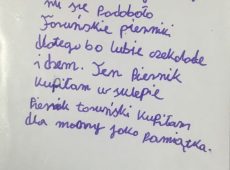 mi się Podobało
Toruńskie pierniki
dlatego bo lubie czekolade
i dżem. Ten Piernik
kupiłam w sklepie
Piernik toruński kupiłam
dla mamy jako Pamiątka.